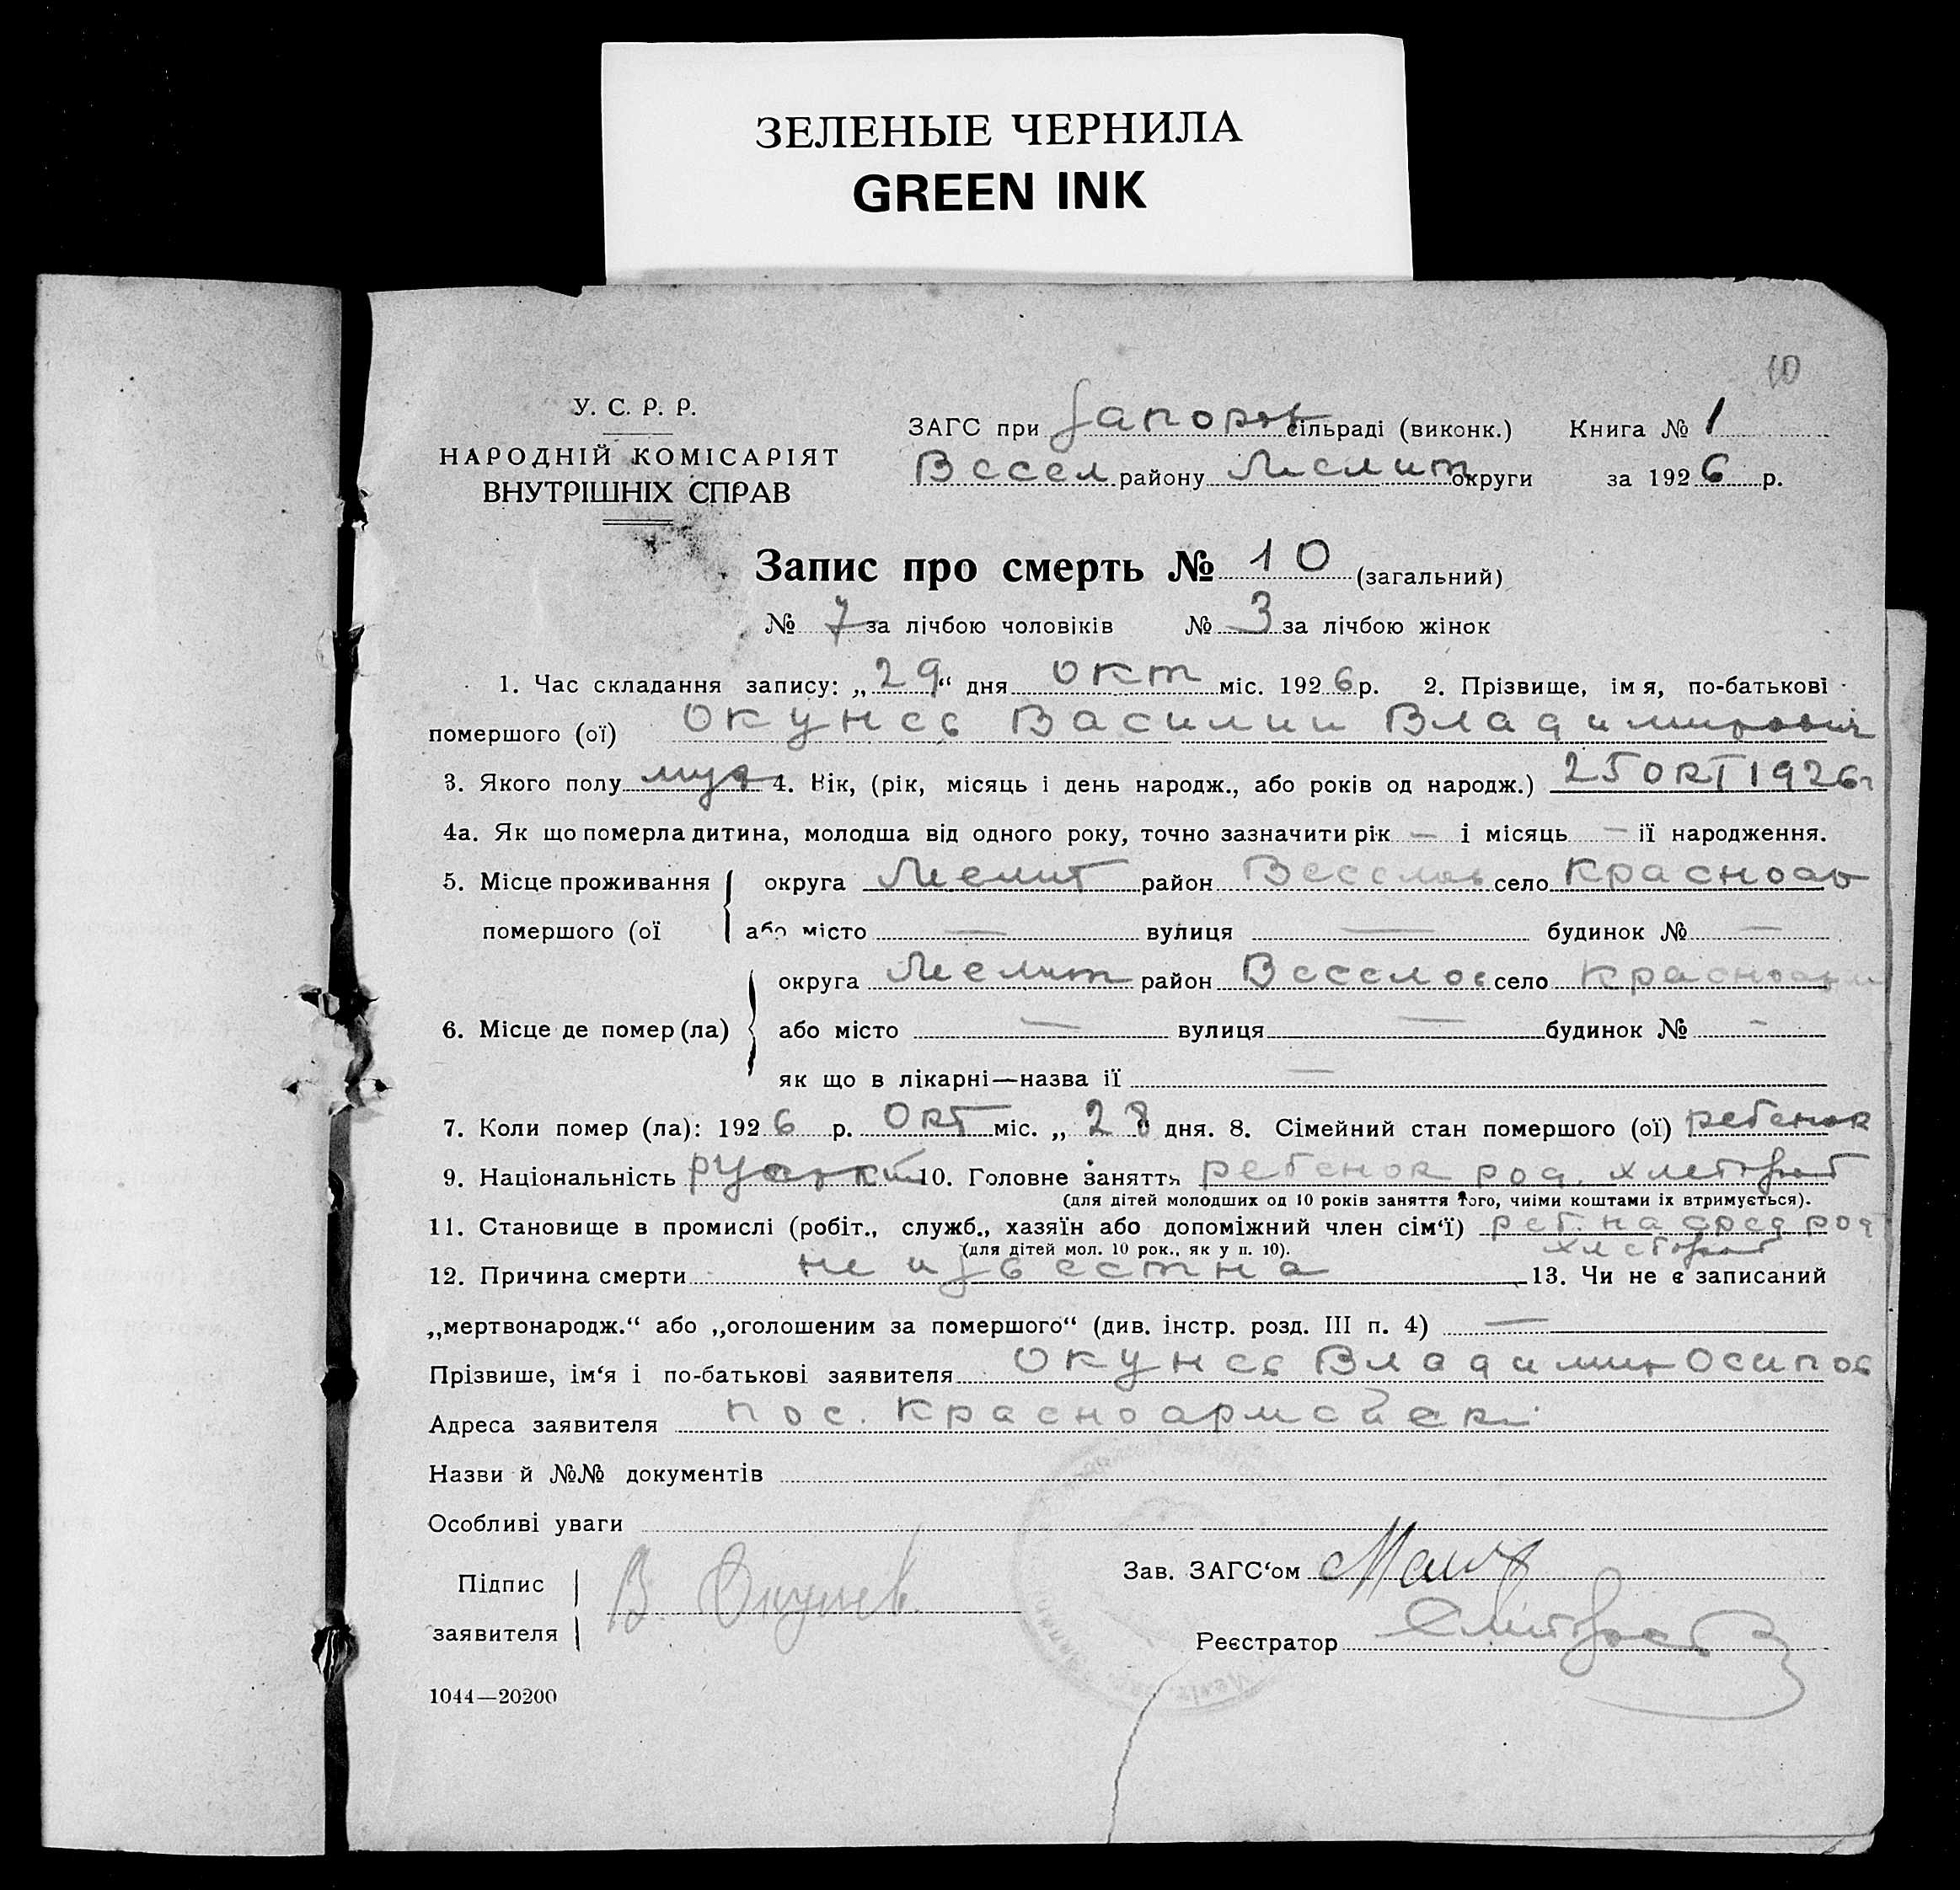 ЗЕЛЕНЫЕ ЧЕРНИЛА
GREEN INK
10
У. С. Р. Р.
НАРОДНІЙ КОМІСАРІЯТ
ВНУТРІШНІХ СПРАВ
ЗАГС при Запорож сільраді (виконк.) Книга № 1
Весел району Мелит округи за 1926 р.
Запис про смерть № 10 (загальний)
№ 7 за лічбою чоловіків № 3 за лічбою жінок
1. Час складання запису: „29“ дня окт міс. 1926 р. 2. Прізвище, імя, по-батькові
помершого (ої) Окунев Василии Владимирович
3. Якого полу муж 4. Вік, (рік, місяць і день народж., або років од народж.) 25 окт 1926 г
4а. Як що померла дитина, молодша від одного року, точно зазначити рік — і місяць — її народження.
5. Місце проживання округа Мелит район Веселов село Красноар
помершого (ої або місто — вулиця — будинок № —
округа Мелит район Веселов село Красноарм
6. Місце де помер (ла) або місто — вулиця — будинок № —
як що в лікарні—назва її —
7. Коли помер (ла): 1926 р. окт міс. „28“ дня. 8. Сімейний стан помершого (ої) ребенок
9. Національність руский 10. Головне заняття ребенок род. хлебороб
(для дітей молодших од 10 років заняття того, чиїми коштами їх втримується).
11. Становище в промислі (робіт., служб., хазяїн або допоміжний член сім‘ї) реб. на сред род
хлебороб
(для дітей мол. 10 рок., як у п. 10).
12. Причина смерти не известна 13. Чи не є записаний
„мертвонародж.“ або „оголошеним за помершого“ (див. інстр. розд. III п. 4) —
Прізвише, ім‘я і по-батькові заявителя Окунев Владимир Осипов
Адреса заявителя пос. Красноармейск
Назви й №№ документів
Особливі уваги
Підпис
заявителя В. Окунев
Зав. ЗАГС‘ом
Реєстратор
1044—20200